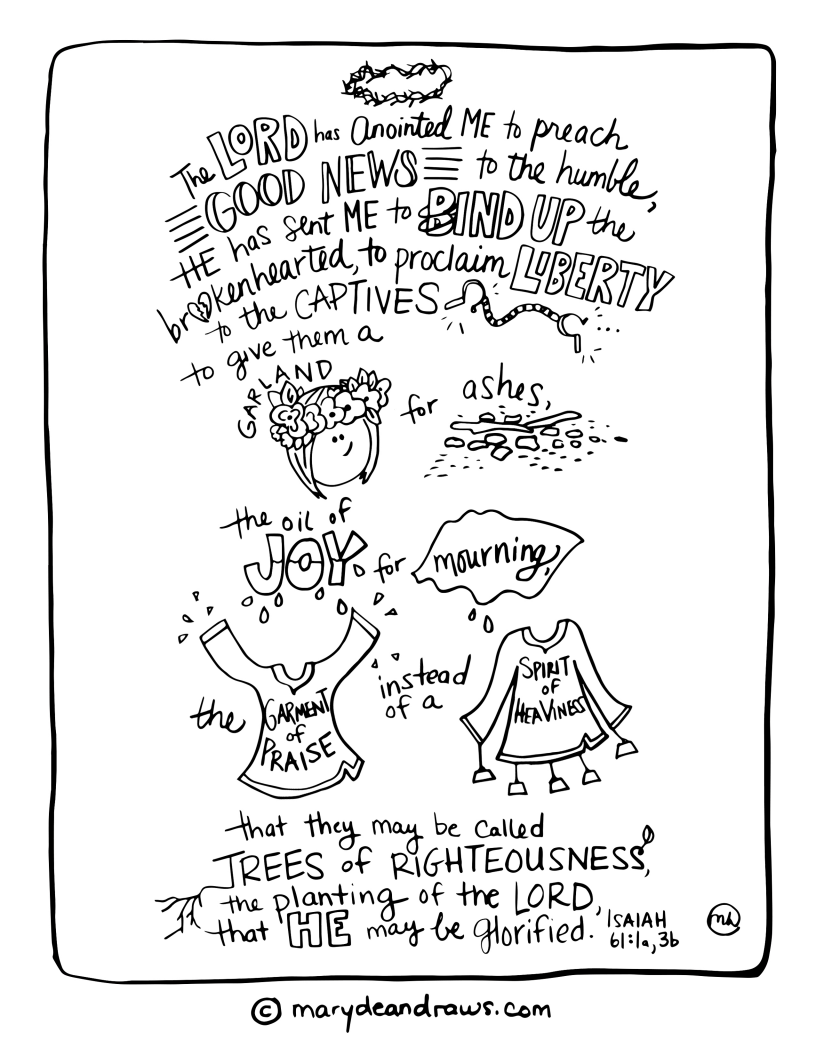 The LORD has anointed ME to preach
GOOD NEWS to the humble,
HE has sent ME to BIND UP the
brokenhearted, to proclaim LIBERTY
to the CAPTIVES
to give them a
GARLAND
for ashes,
the oil of
JOY for mourning,
the GARMENT
of
PRAISE
instead
of a
SPIRIT
of
HEAVINESS
that they may be called
TREES of RIGHTEOUSNESS,
the planting of the LORD,
that HE may be glorified.
ISAIAH
61:1a,3b
md
© marydeandraws.com